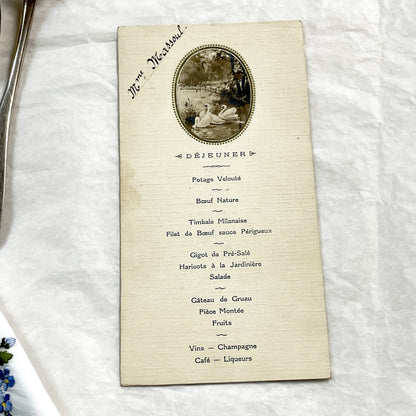 Mme Massoul.
DÉJEUNER
Potage Velouté
Bœuf Nature
Timbale Milanaise
Filet de Bœuf sauce Périgueux
Gigot de Pré-Salé
Haricots à la Jardinière
Salade
Gâteau de Gruau
Pièce Montée
Fruits
Vins — Champagne
Café — Liqueurs